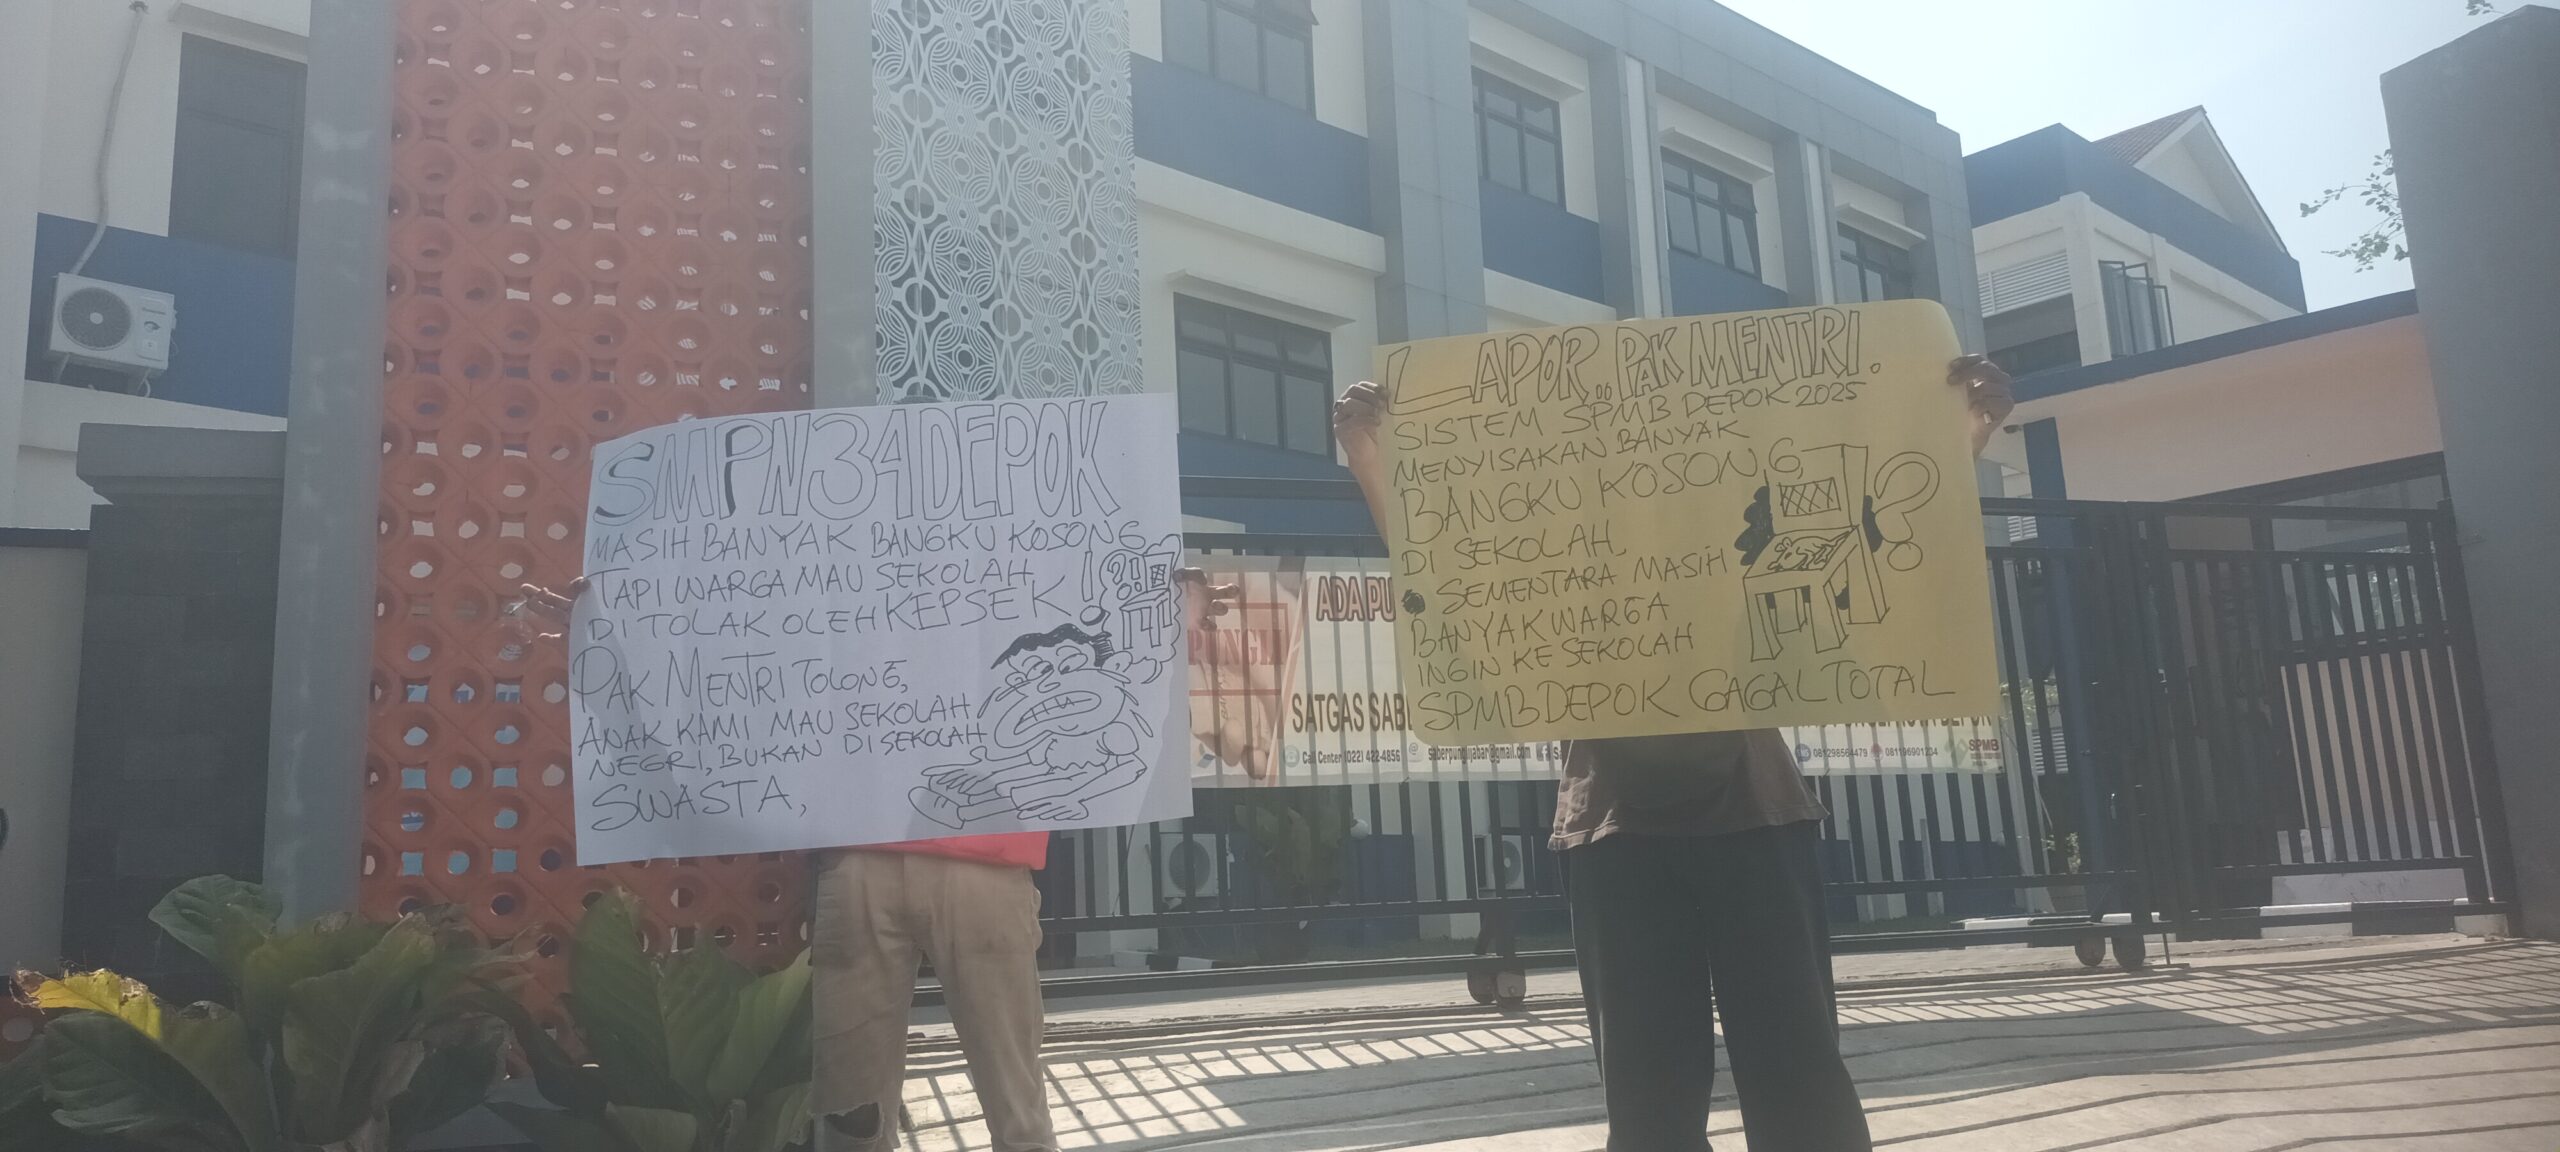 SMPN 34 DEPOK
MASIH BANYAK BANGKU KOSONG
TAPI WARGA MAU SEKOLAH
DI TOLAK OLEH KEPSEK!
?!
PAK MENTRI TOLONG,
ANAK KAMI MAU SEKOLAH
NEGRI, BUKAN DI SEKOLAH
SWASTA,
LAPOR.. PAK MENTRI.
SISTEM SPMB DEPOK 2025
MENYISAKAN BANYAK
BANGKU KOSONG
DI SEKOLAH,
SEMENTARA MASIH
BANYAK WARGA
INGIN KE SEKOLAH
SPMB DEPOK GAGAL TOTAL
?
PUNGLI
ADA PU
SATGAS SABE
Call Center (022) 422-4856
saberpunglijabar@gmail.com
081298564479
081196901234
SPMB